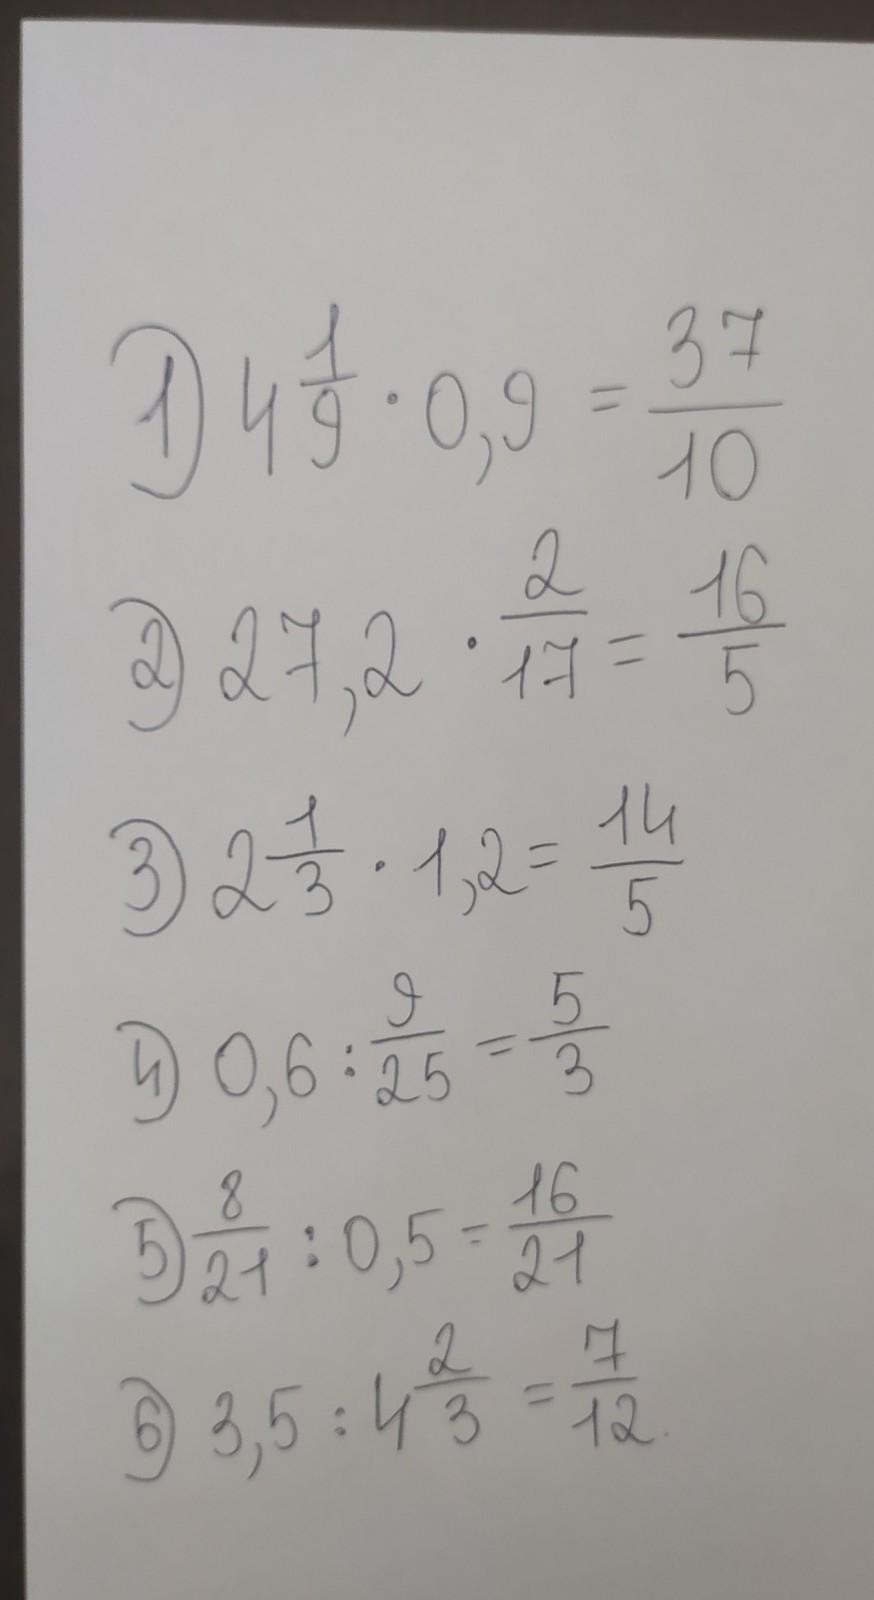 1) 4 1/9 · 0,9 = 37/10
2) 27,2 · 2/17 = 16/5
3) 2 1/3 · 1,2 = 14/5
4) 0,6 : 9/25 = 5/3
5) 8/21 : 0,5 = 16/21
6) 3,5 : 4 2/3 = 7/12.